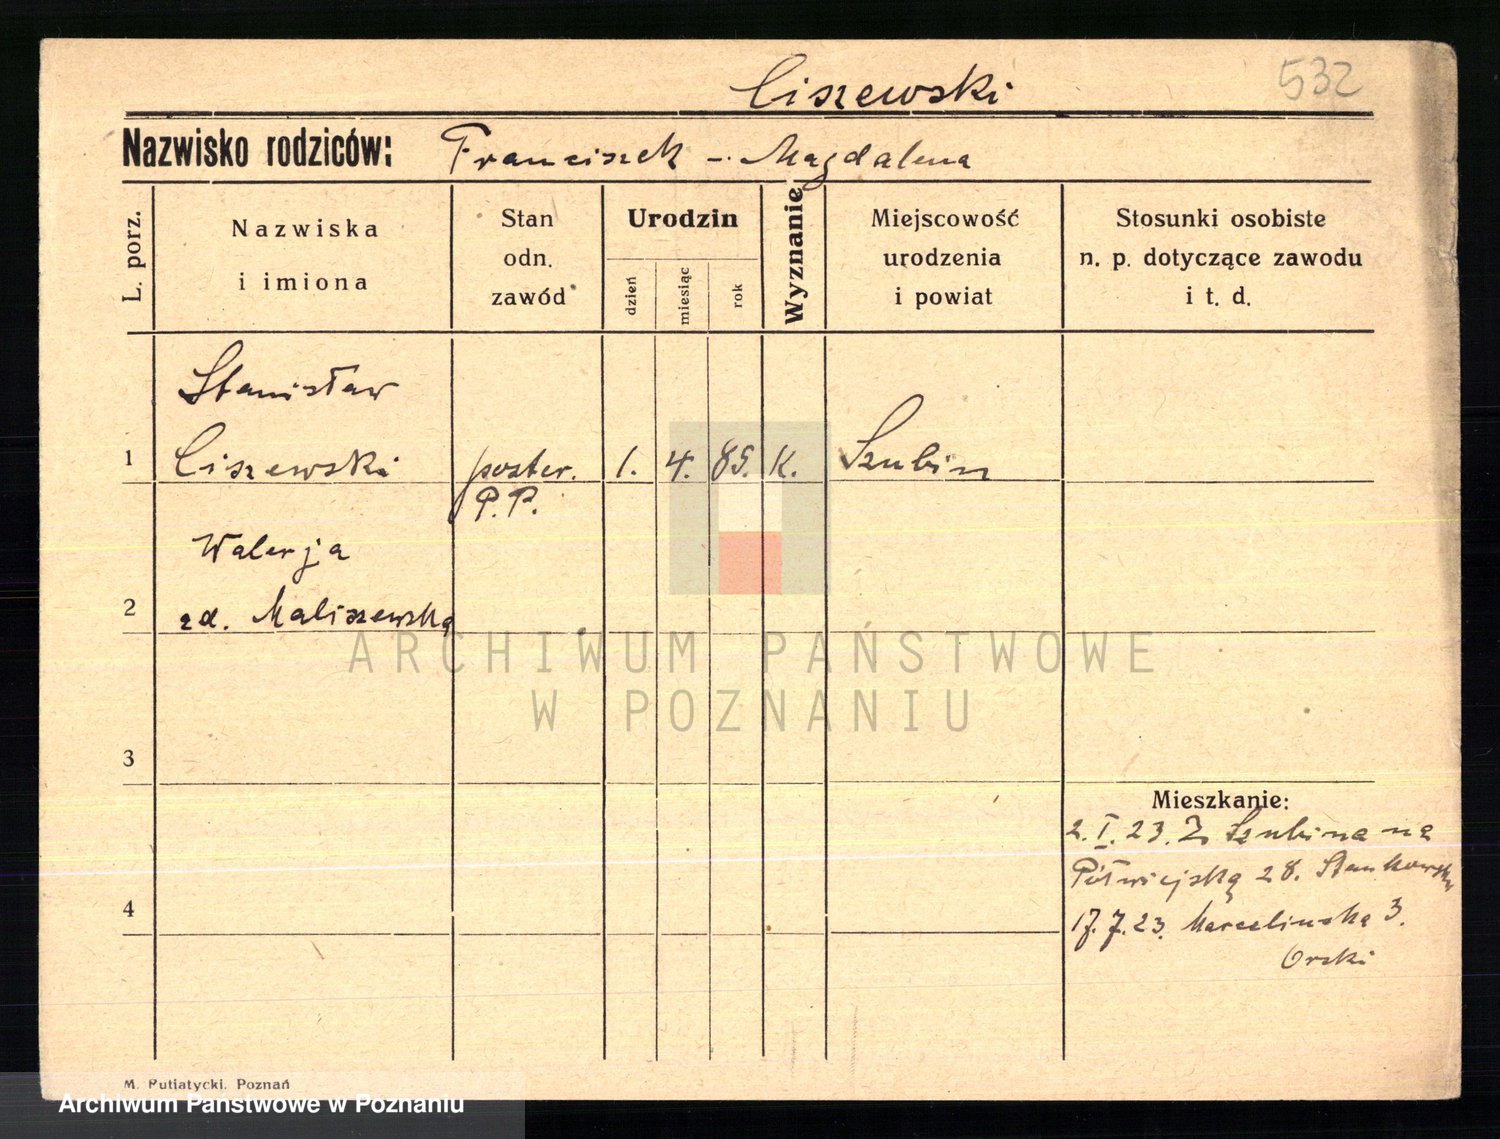 Ciszewski 532
Nazwisko rodziców: Franciszek - Magdalena
L. porz.
Nazwiska
i imiona
Stan
odn.
zawód
Urodzin
dzień
miesiąc
rok
Wyznanie
Miejscowość
urodzenia
i powiat
Stosunki osobiste
n. p. dotyczące zawodu
i t. d.
Stanisław
1 Ciszewski poster. 1. 4. 85. K. Szubin
P.P.
Walerja
2 zd. Maliszewska
ARCHIWUM PAŃSTWOWE
W POZNANIU
3
Mieszkanie:
2. I. 23. Z Szubina na
Półwiejską 28. Stankowski
4
17. 7. 23. Marcelińska 3.
Orski
M. Putiatycki, Poznań
Archiwum Państwowe w Poznaniu